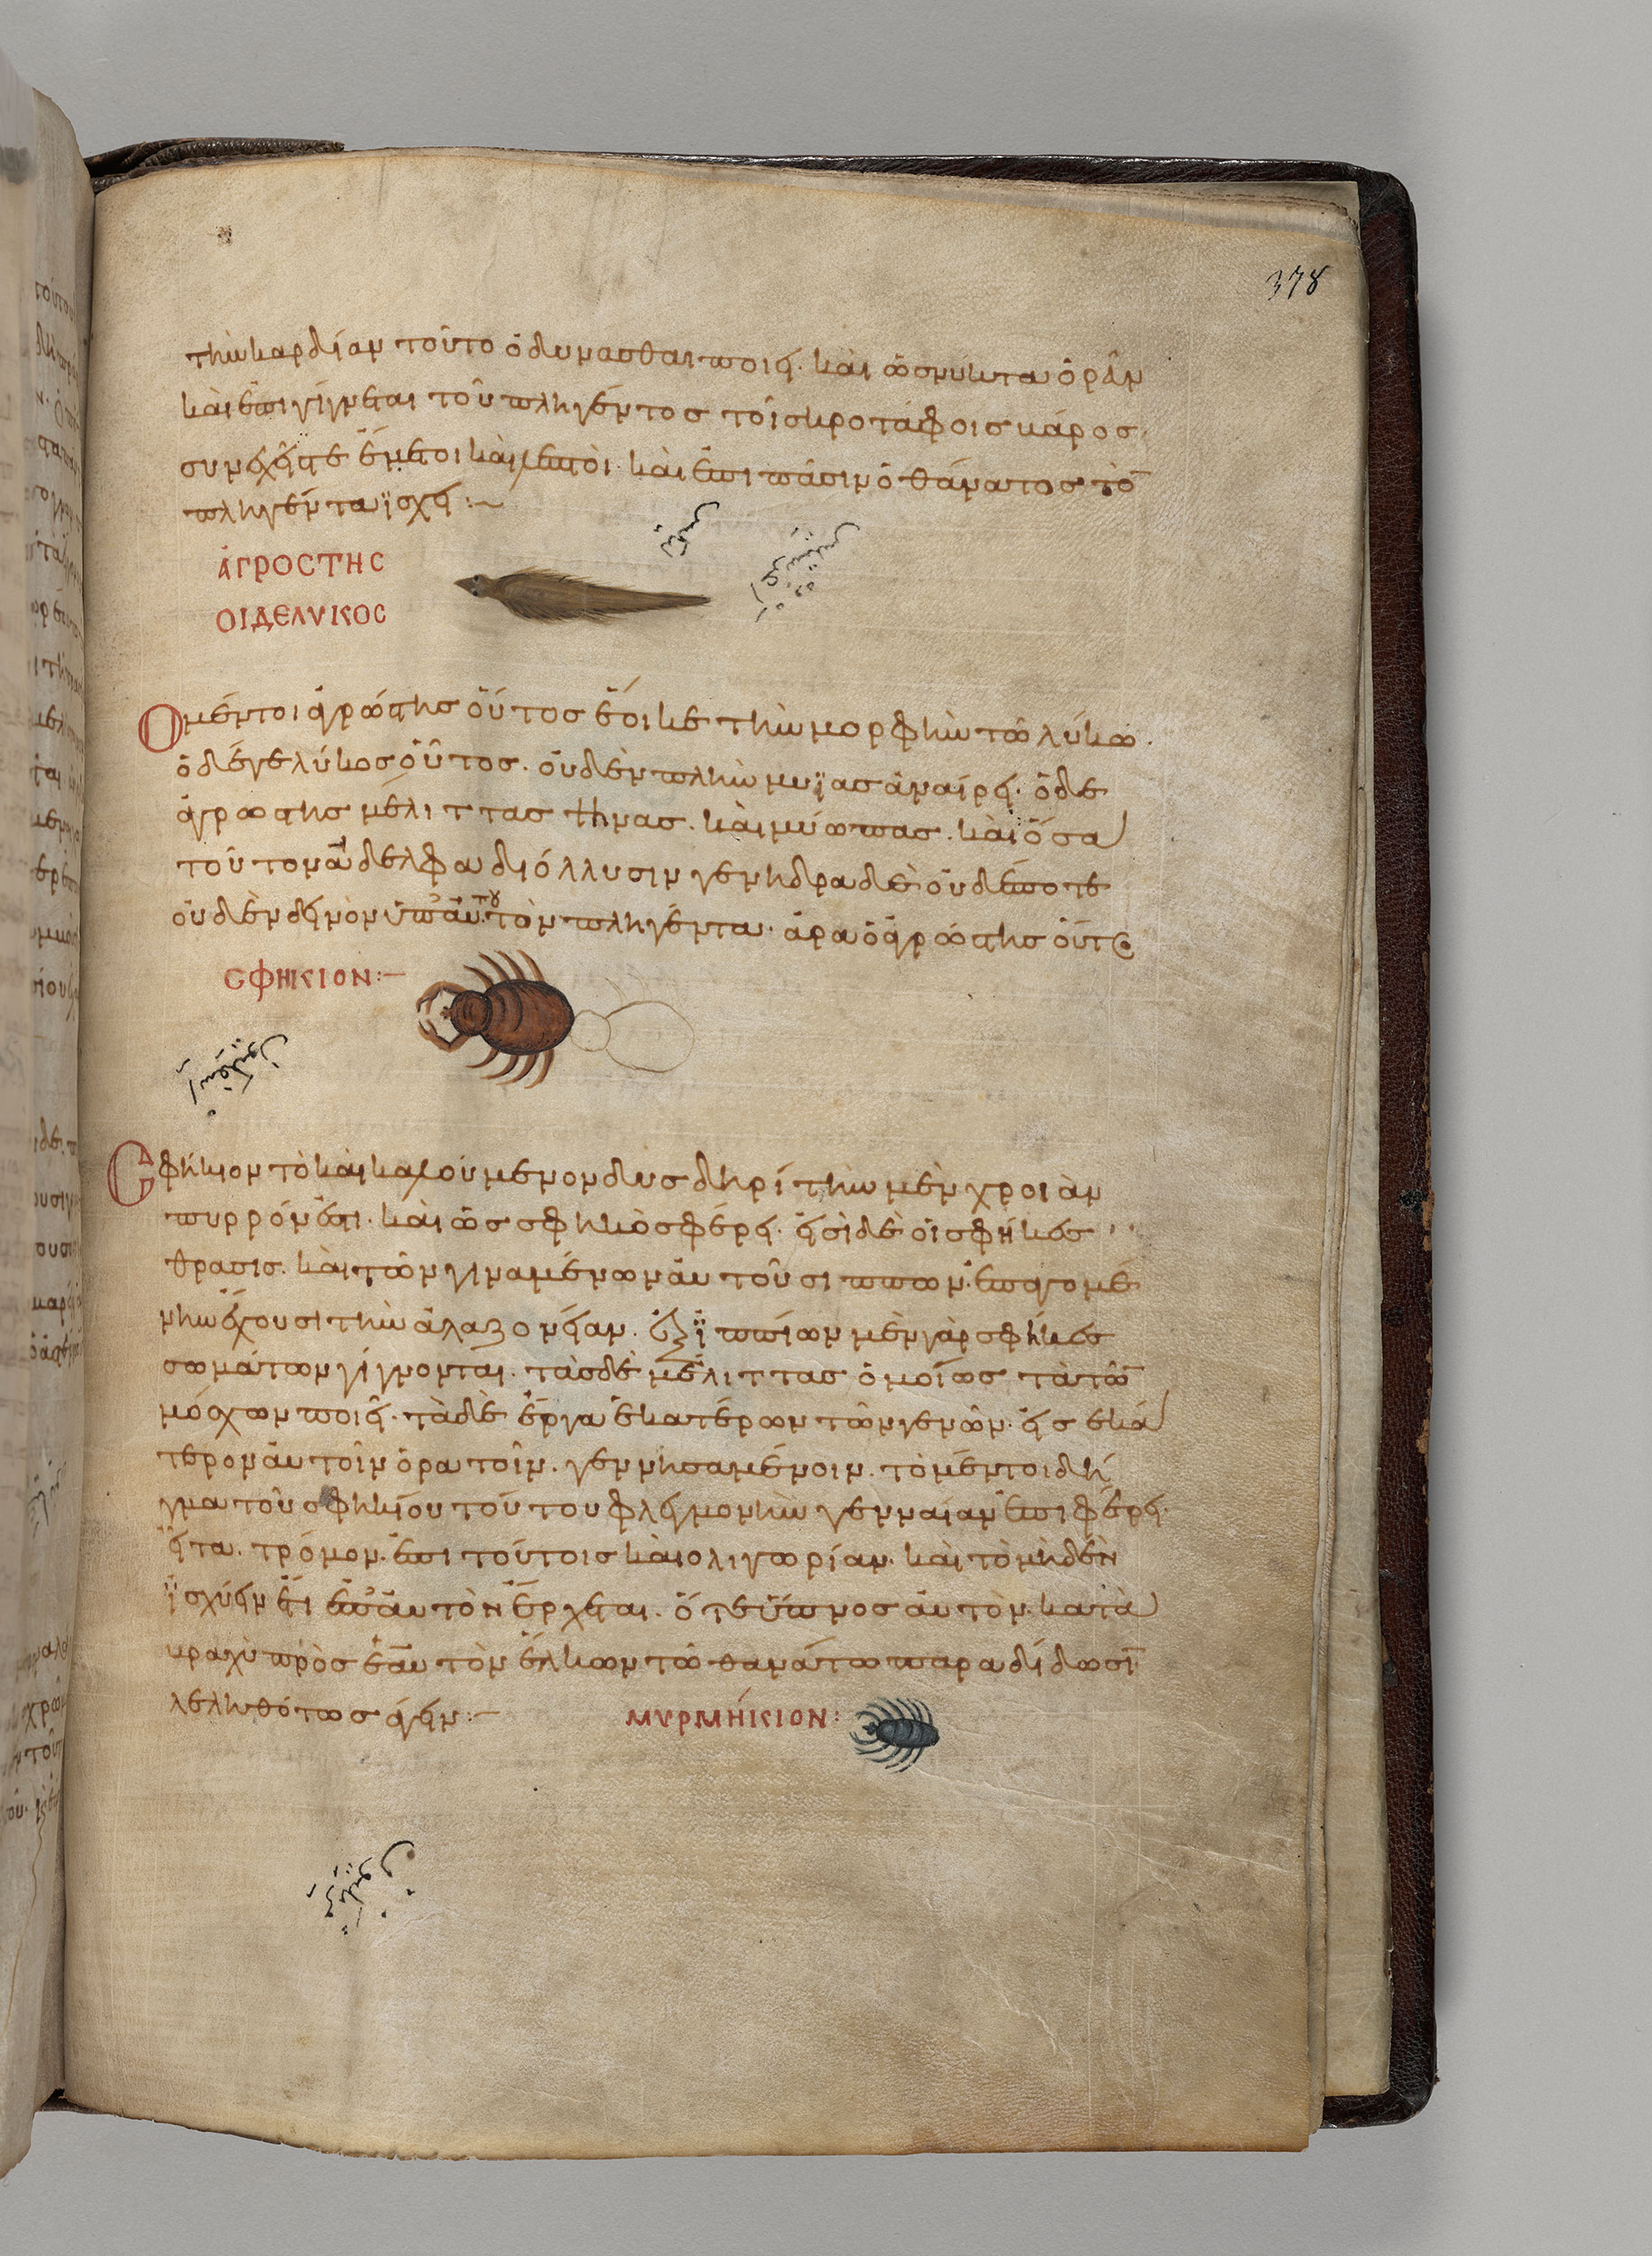 378
τὴν καρδίαν τοῦτο ὀδυνᾶσθαι ποιεῖ· καὶ ὡς νύκτα ὁρᾶν
καὶ ἐπιγίγνεται τοῦ πληγέντος τοῖς κροτάφοις κάρος·
συνεχεῖς τε ἔμετοι καὶ λεπτοὶ· καὶ ἐπιπᾶσιν ὁ θάνατος τὸ
πληγέντα ἴσχει:~
ἈΓΡΟΣΤΗΣ
ΟΙΔΕΛΥΚΟΣ
Ὁ μέντοι ἀγρώστης οὗτος ἔοικε τὴν μορφὴν τῶ λύκω·
ὁ δέ γε λύκος οὗτος· οὐδὲν πλὴν μυΐας ἀναίρει· ὁδε
ἀγρώστης μέλιττας τήνας· καὶ μύωπας· καὶ ὅσα
τούτον ἀδελφα διόλλυσιν γενηδρα δὲ οὐδέποτε
οὐδὲν δεινὸν ὑπ' αυτου τὸν πληγέντα· ἀρα ὁ ἀγρώστης οὗτος
ΣΦΗΚΙΟΝ:—
Σφήκιον τὸ καὶ καλούμενον δυσδηρί τὴν μὲν χροιὰν
πυρρόν ἐστι· καὶ ὡς σφηκὸς φέρει· εἰσὶ δὲ οἱ σφῆκες
θρασις· καὶ τῶν γιναμένων ἀυτοῦς ἱππων· ἐπαγομέ
νην ἔχουσι τὴν ἀλαζονείαν· ἐξ ἱππίων μὲν γὰρ σφῆκες
σωμάτων γίγνονται· τὰς δὲ μέλιττας ὁμοίως τὰ τῶ
μόσχων ποιεῖ· τὰ δὲ ἔργα ἑκατέρων τῶν γενῶν· εἰς ἑκά
τερον ἀυτοῖν ὁρατοῖν· γεννησαμένοιν· τὸ μέντοι δῆ
γμα τοῦ σφηκίου τούτου φλεγμονὴν γενναίαν ἐπιφέρει·
εἶτα· τρόμον· ἐπι τούτοις καὶ ολιγωρίαν· καὶ τὸ μὴδὲν
ἰσχύειν ἔτι ἐπ' ἀυτὸν ἔρχεται· ὅτε ὕπνος ἀυτὸν κατὰ
κραχὺ πρὸς ἑαυτὸν ἕλκων τῶ θανάτω παραδίδωσι
λεληθότως ἄγειν:—
ΜΥΡΜΗΚΙΟΝ: